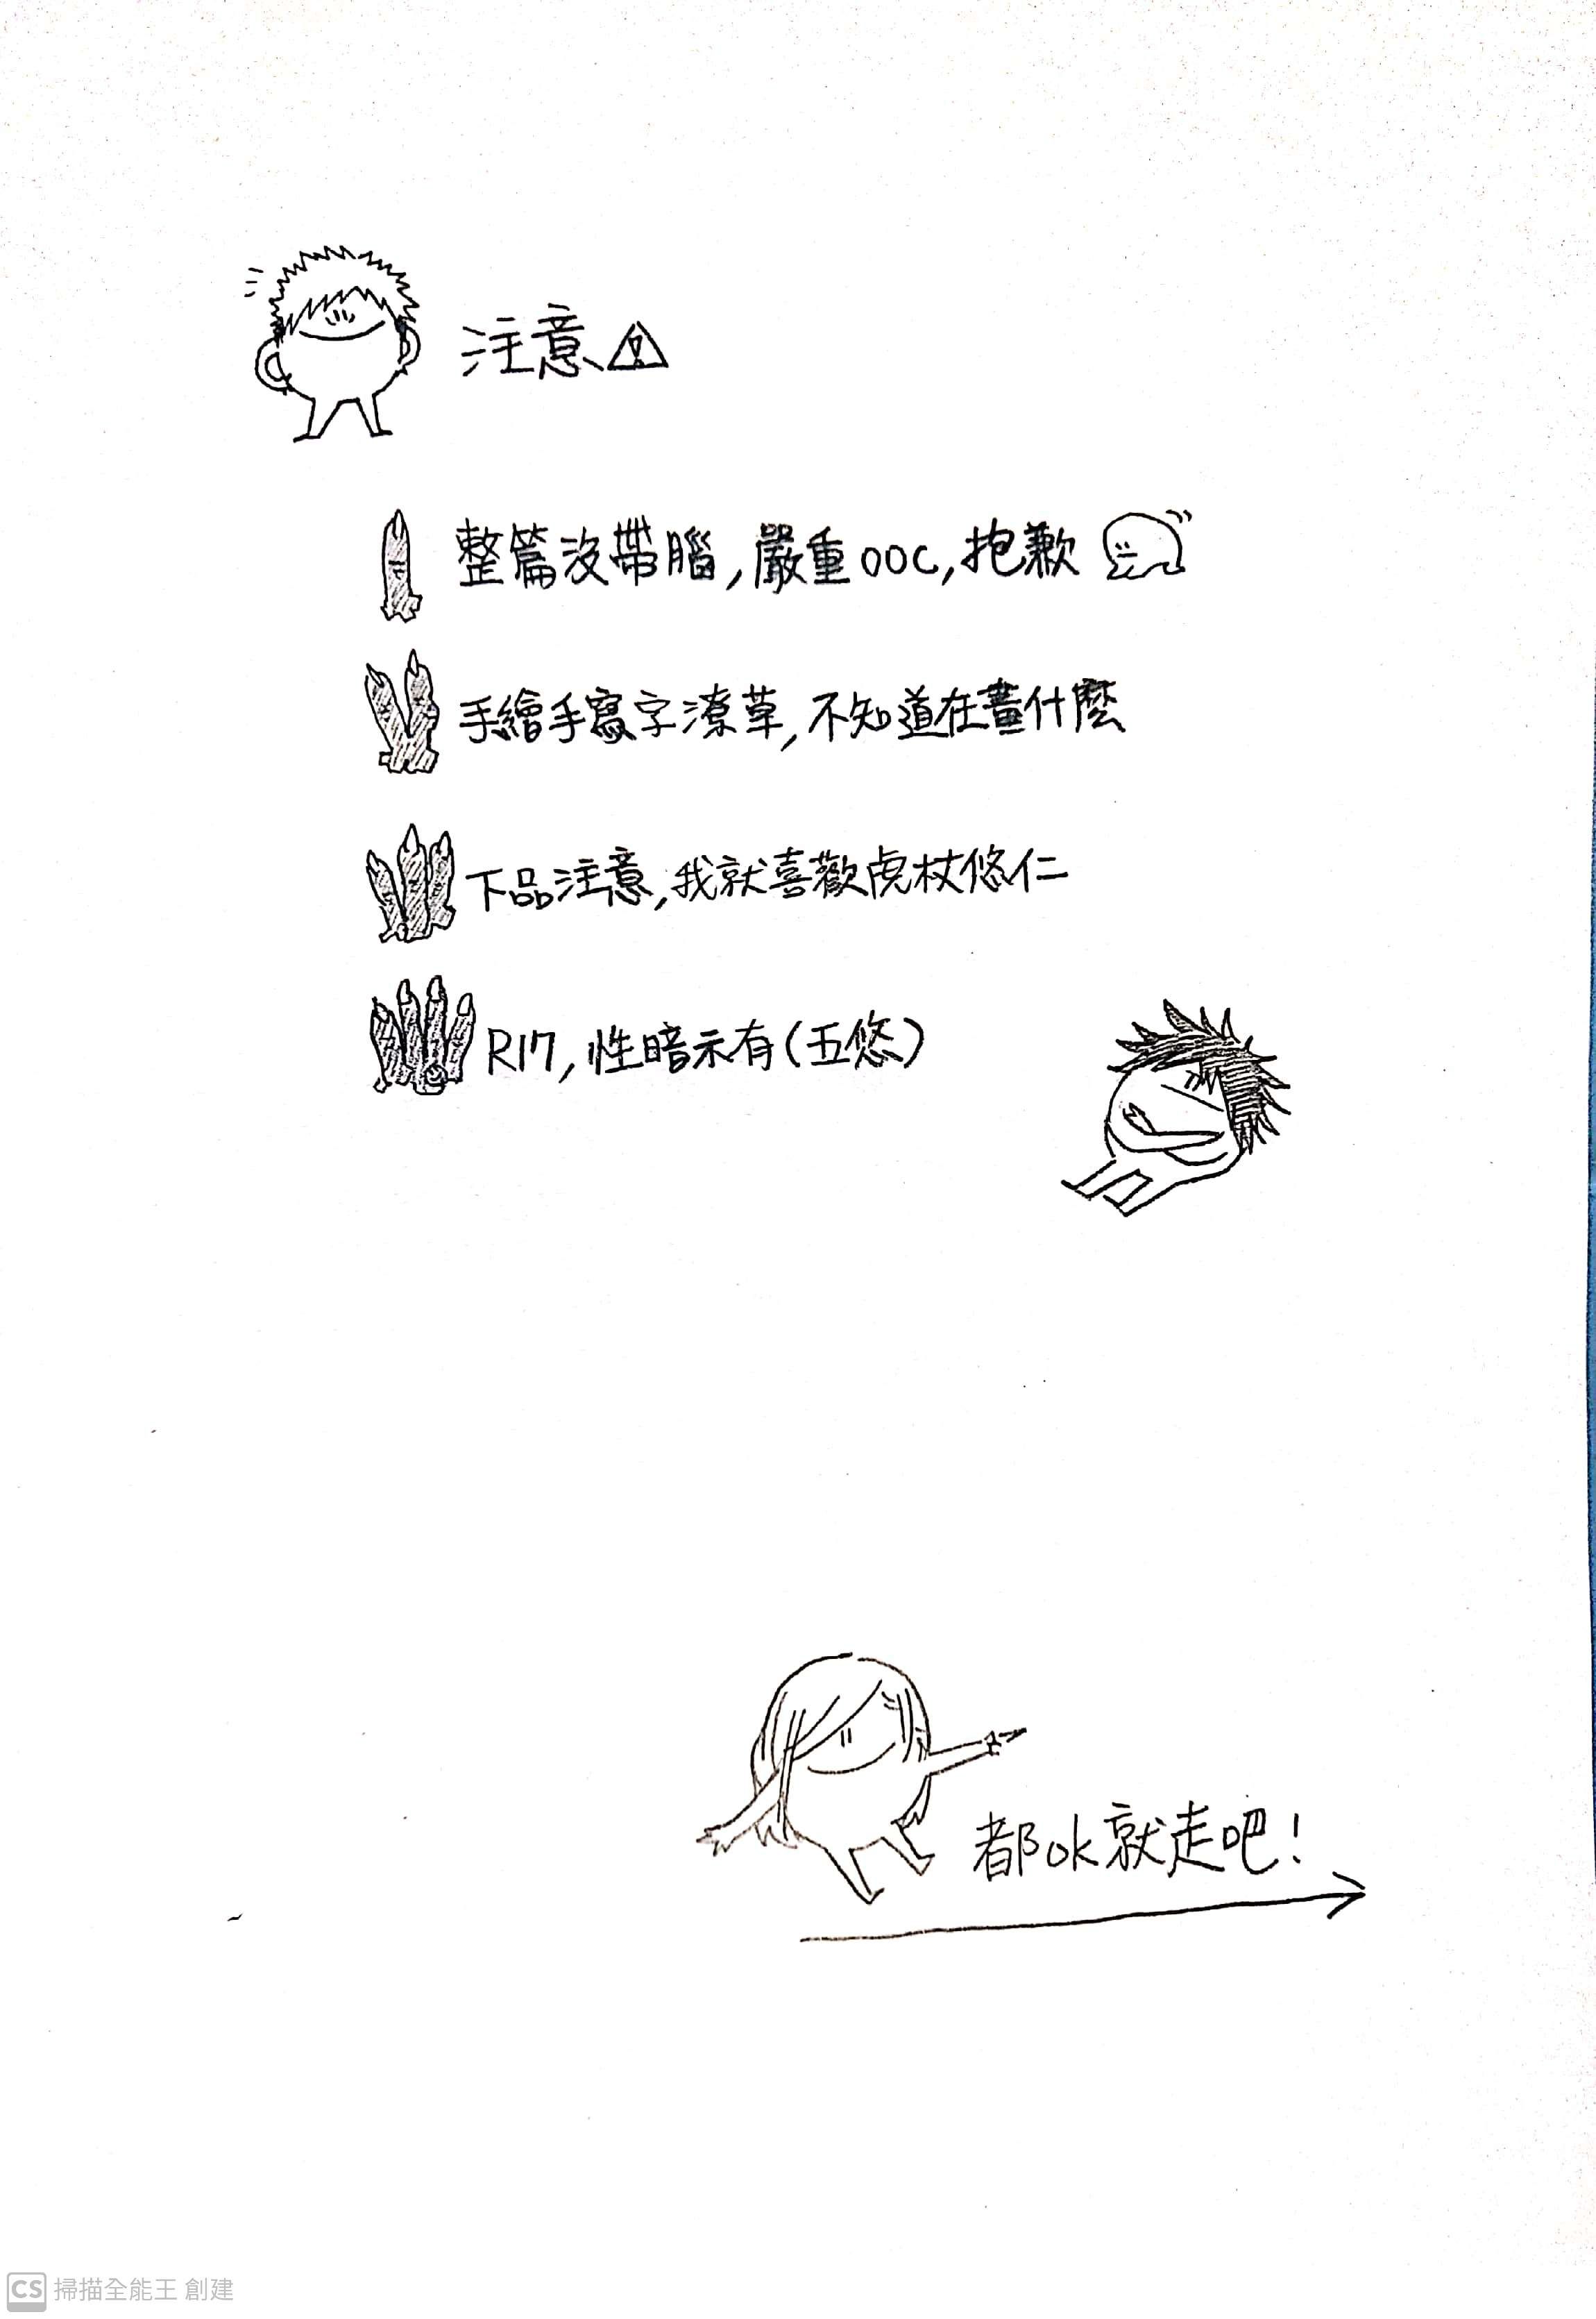 注意
整篇沒帶腦,嚴重OOC,抱歉
手繪手寫字潦草,不知道在畫什麼
下品注意,我就喜歡虎杖悠仁
R17,性暗示有(五悠)
都ok就走吧!
CS 掃描全能王 創建